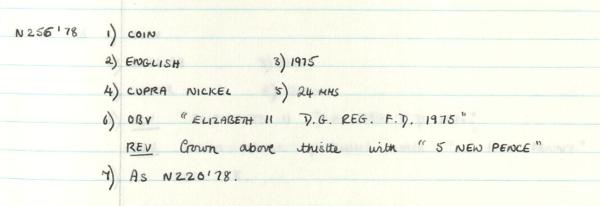 N256'78 1) COIN
2) ENGLISH 3) 1975
4) CUPRA NICKEL 5) 24 MMS
6) OBV "ELIZABETH II D.G. REG. F.D. 1975"
REV Crown above thistle with "5 NEW PENCE"
7) AS N220'78.